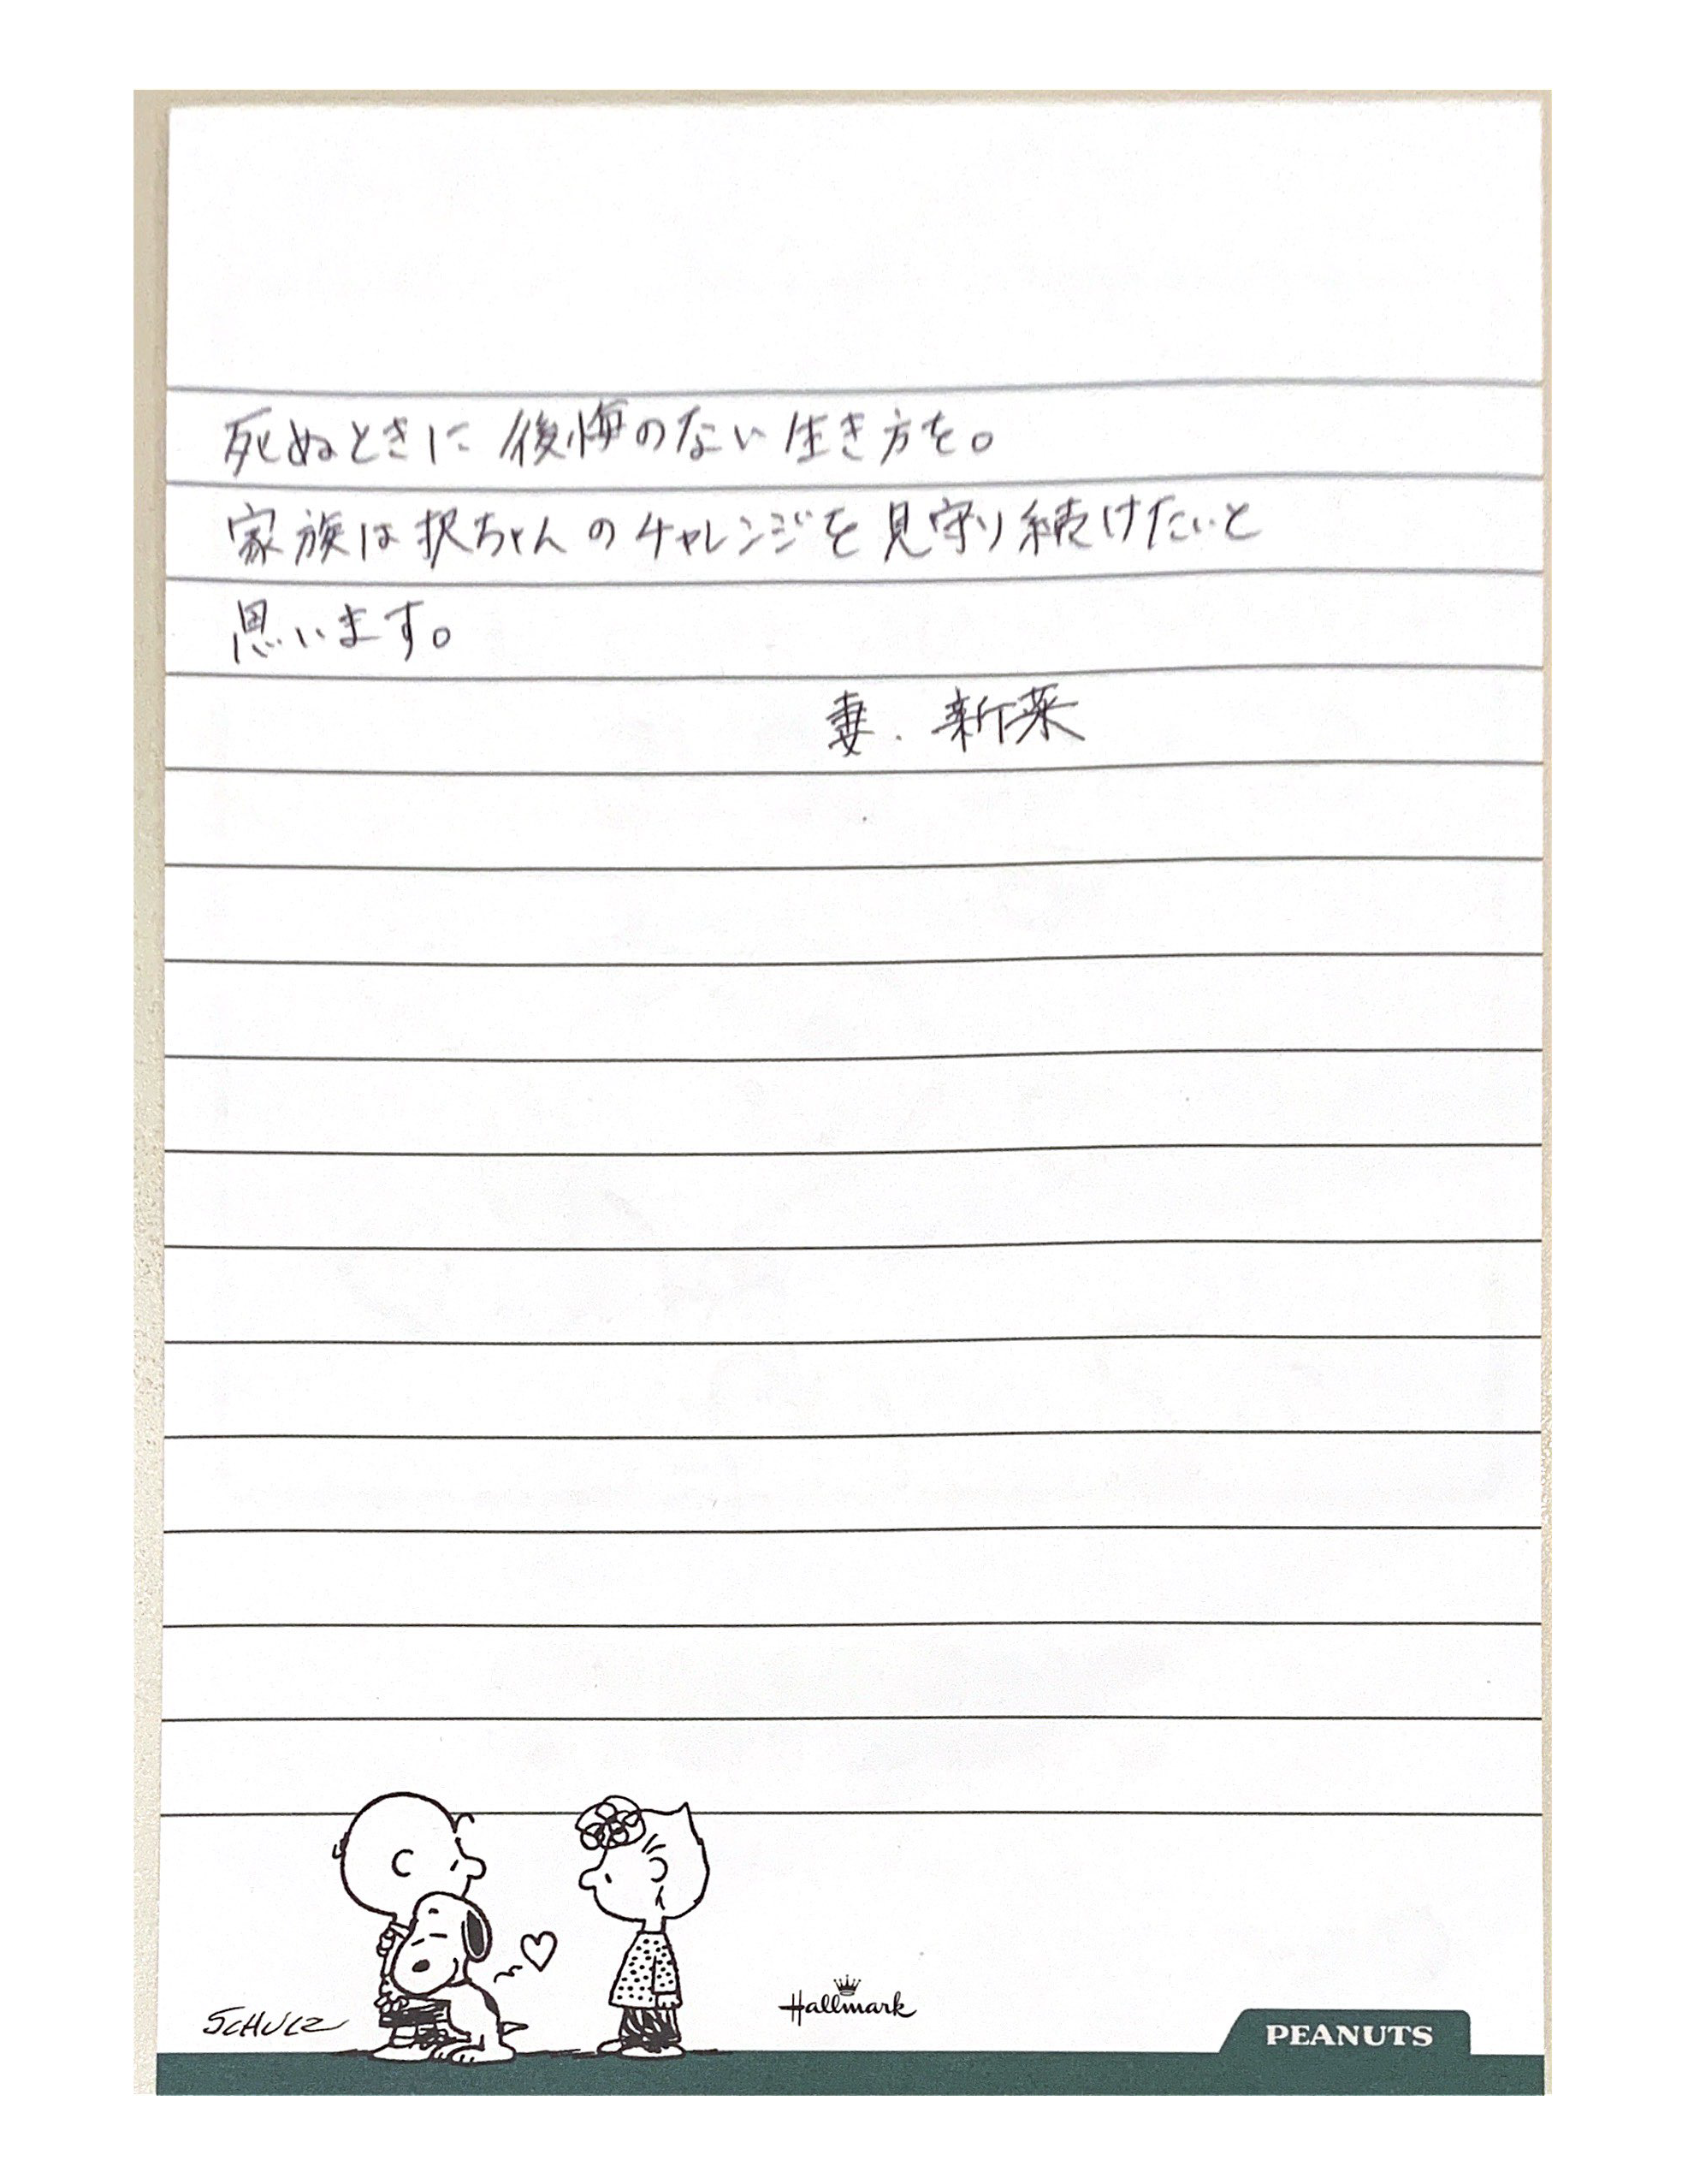 死ぬときに後悔のない生き方を。
家族は択ちゃんのチャレンジを見守り続けたいと
思います。
妻.新菜
SCHULZ
Hallmark
PEANUTS